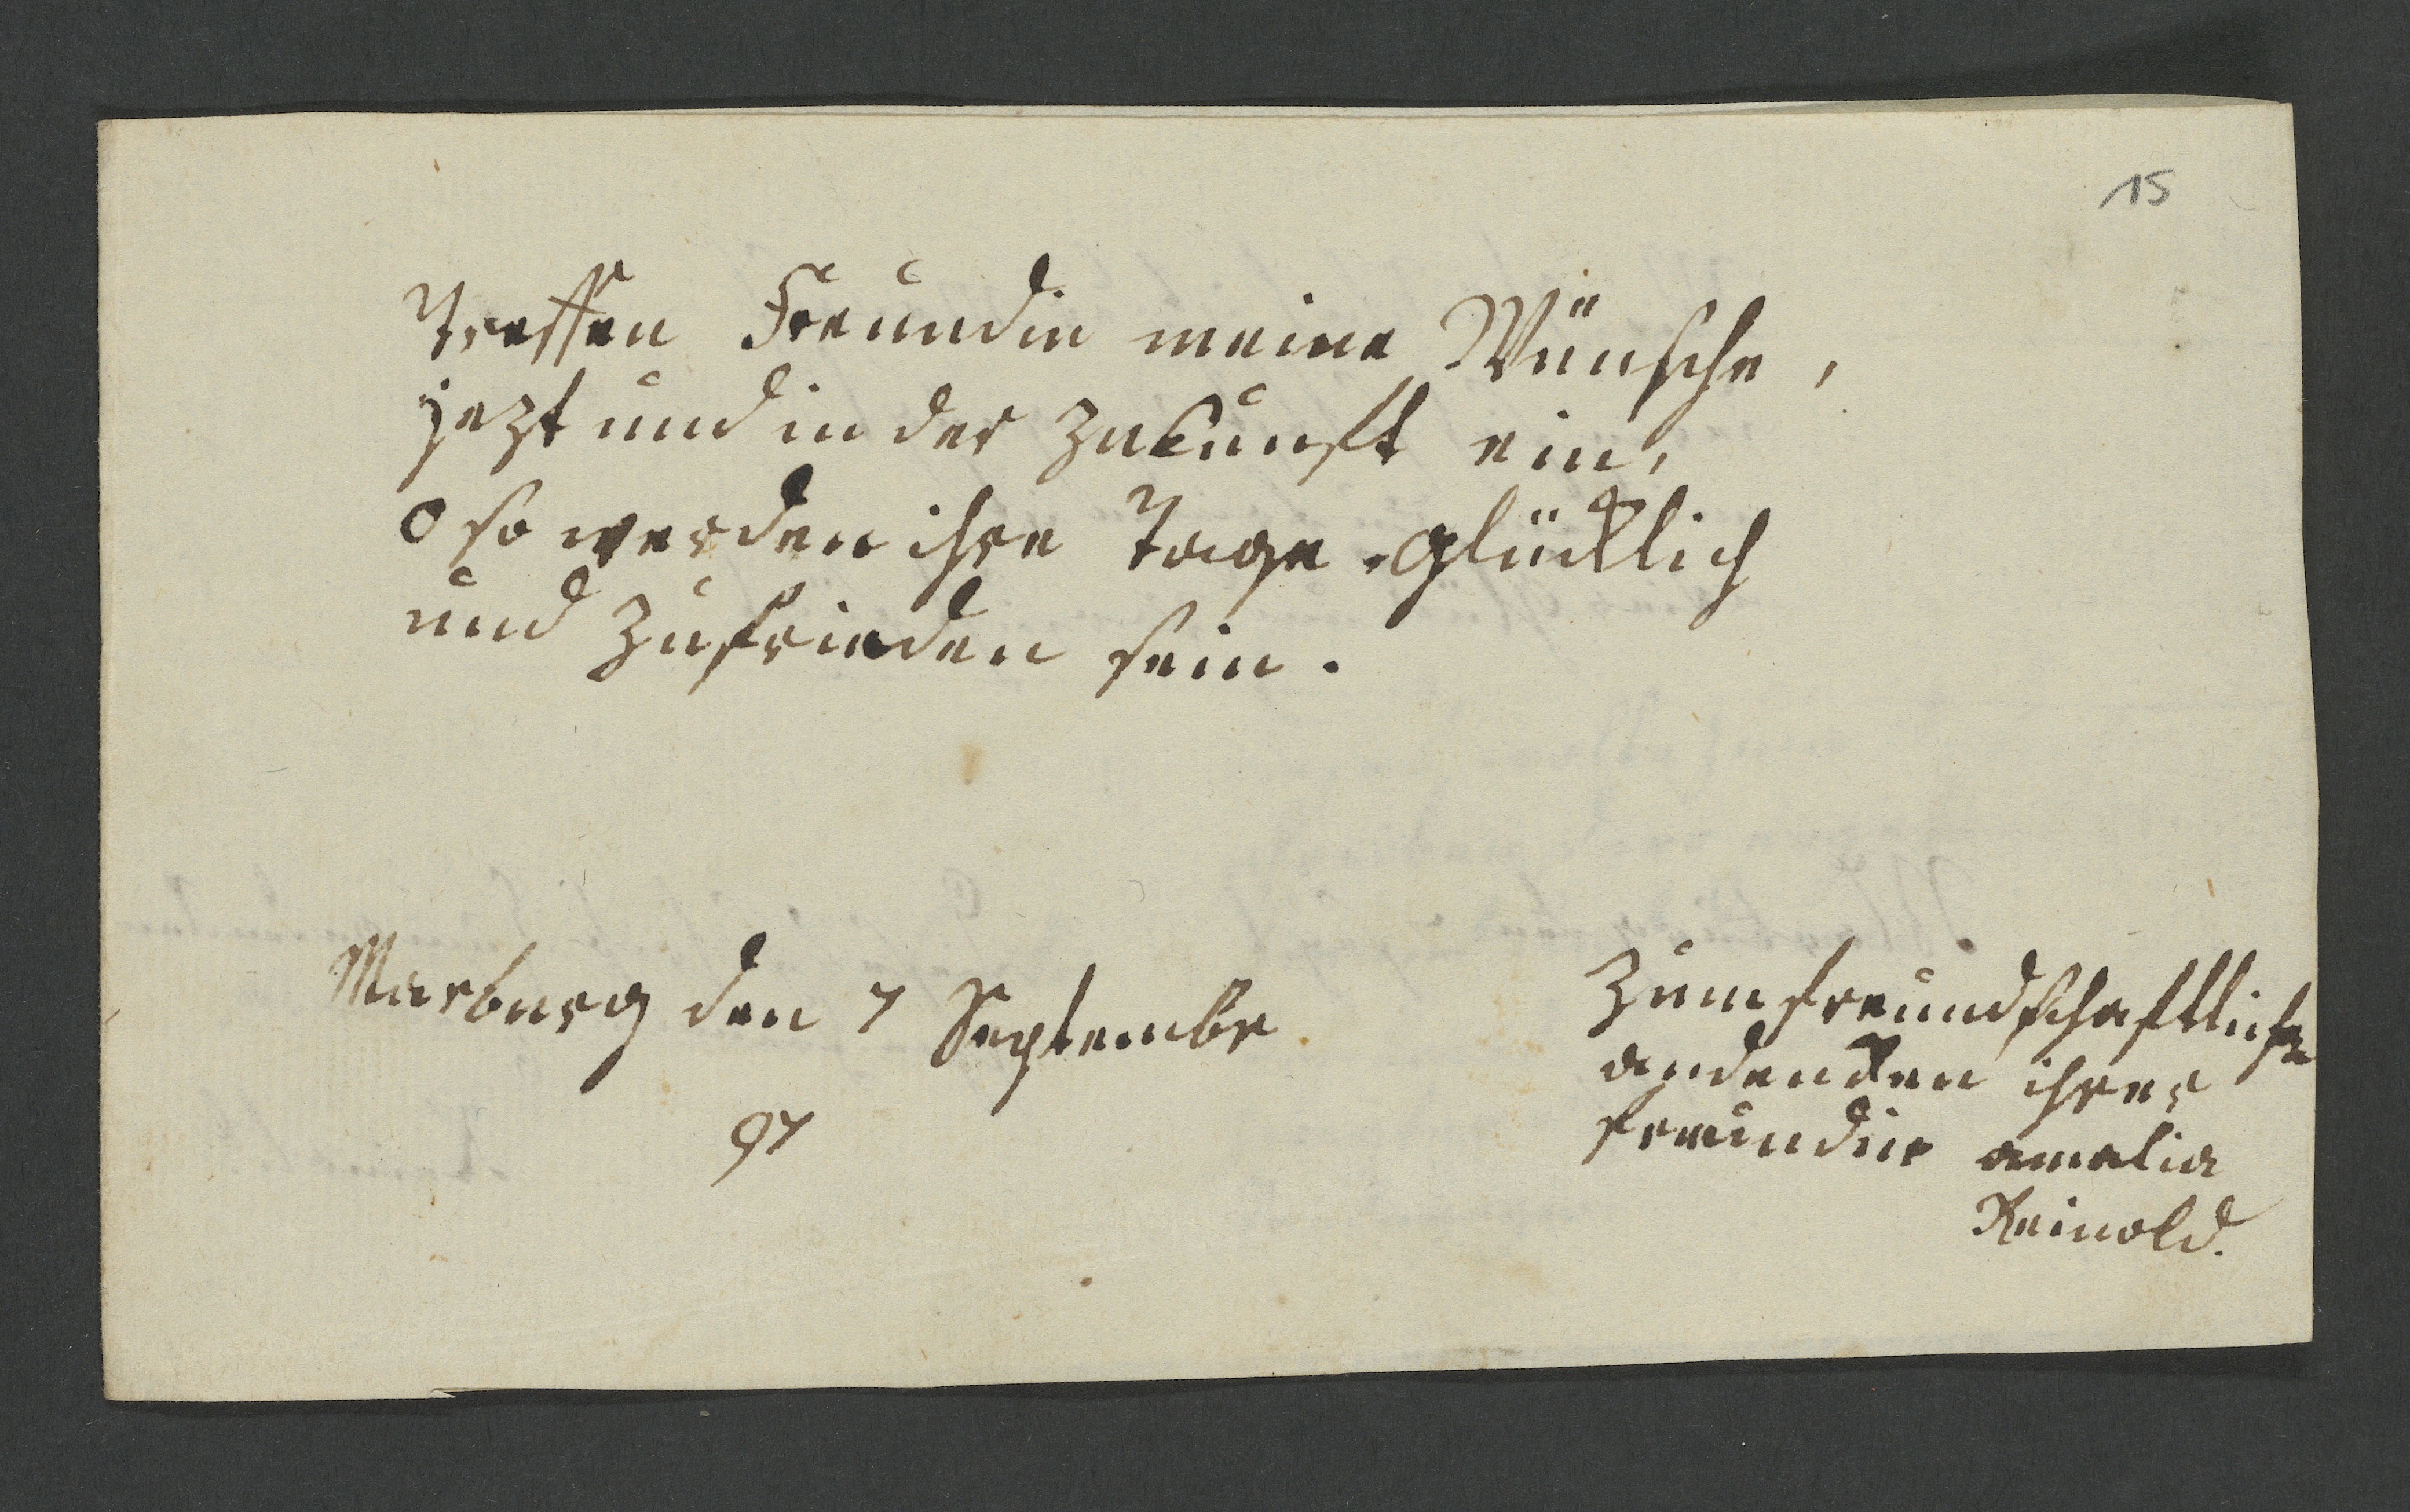 15
Treffen Freundin meine Wünsche,
jezt und in der zukunft ein,
O so werden ihre Tage glücklich
und zufrieden sein.
Marburg den 7 Septembr
97
Zum freundschaftliche
andenken ihrer
freundin amalia
Reinold.